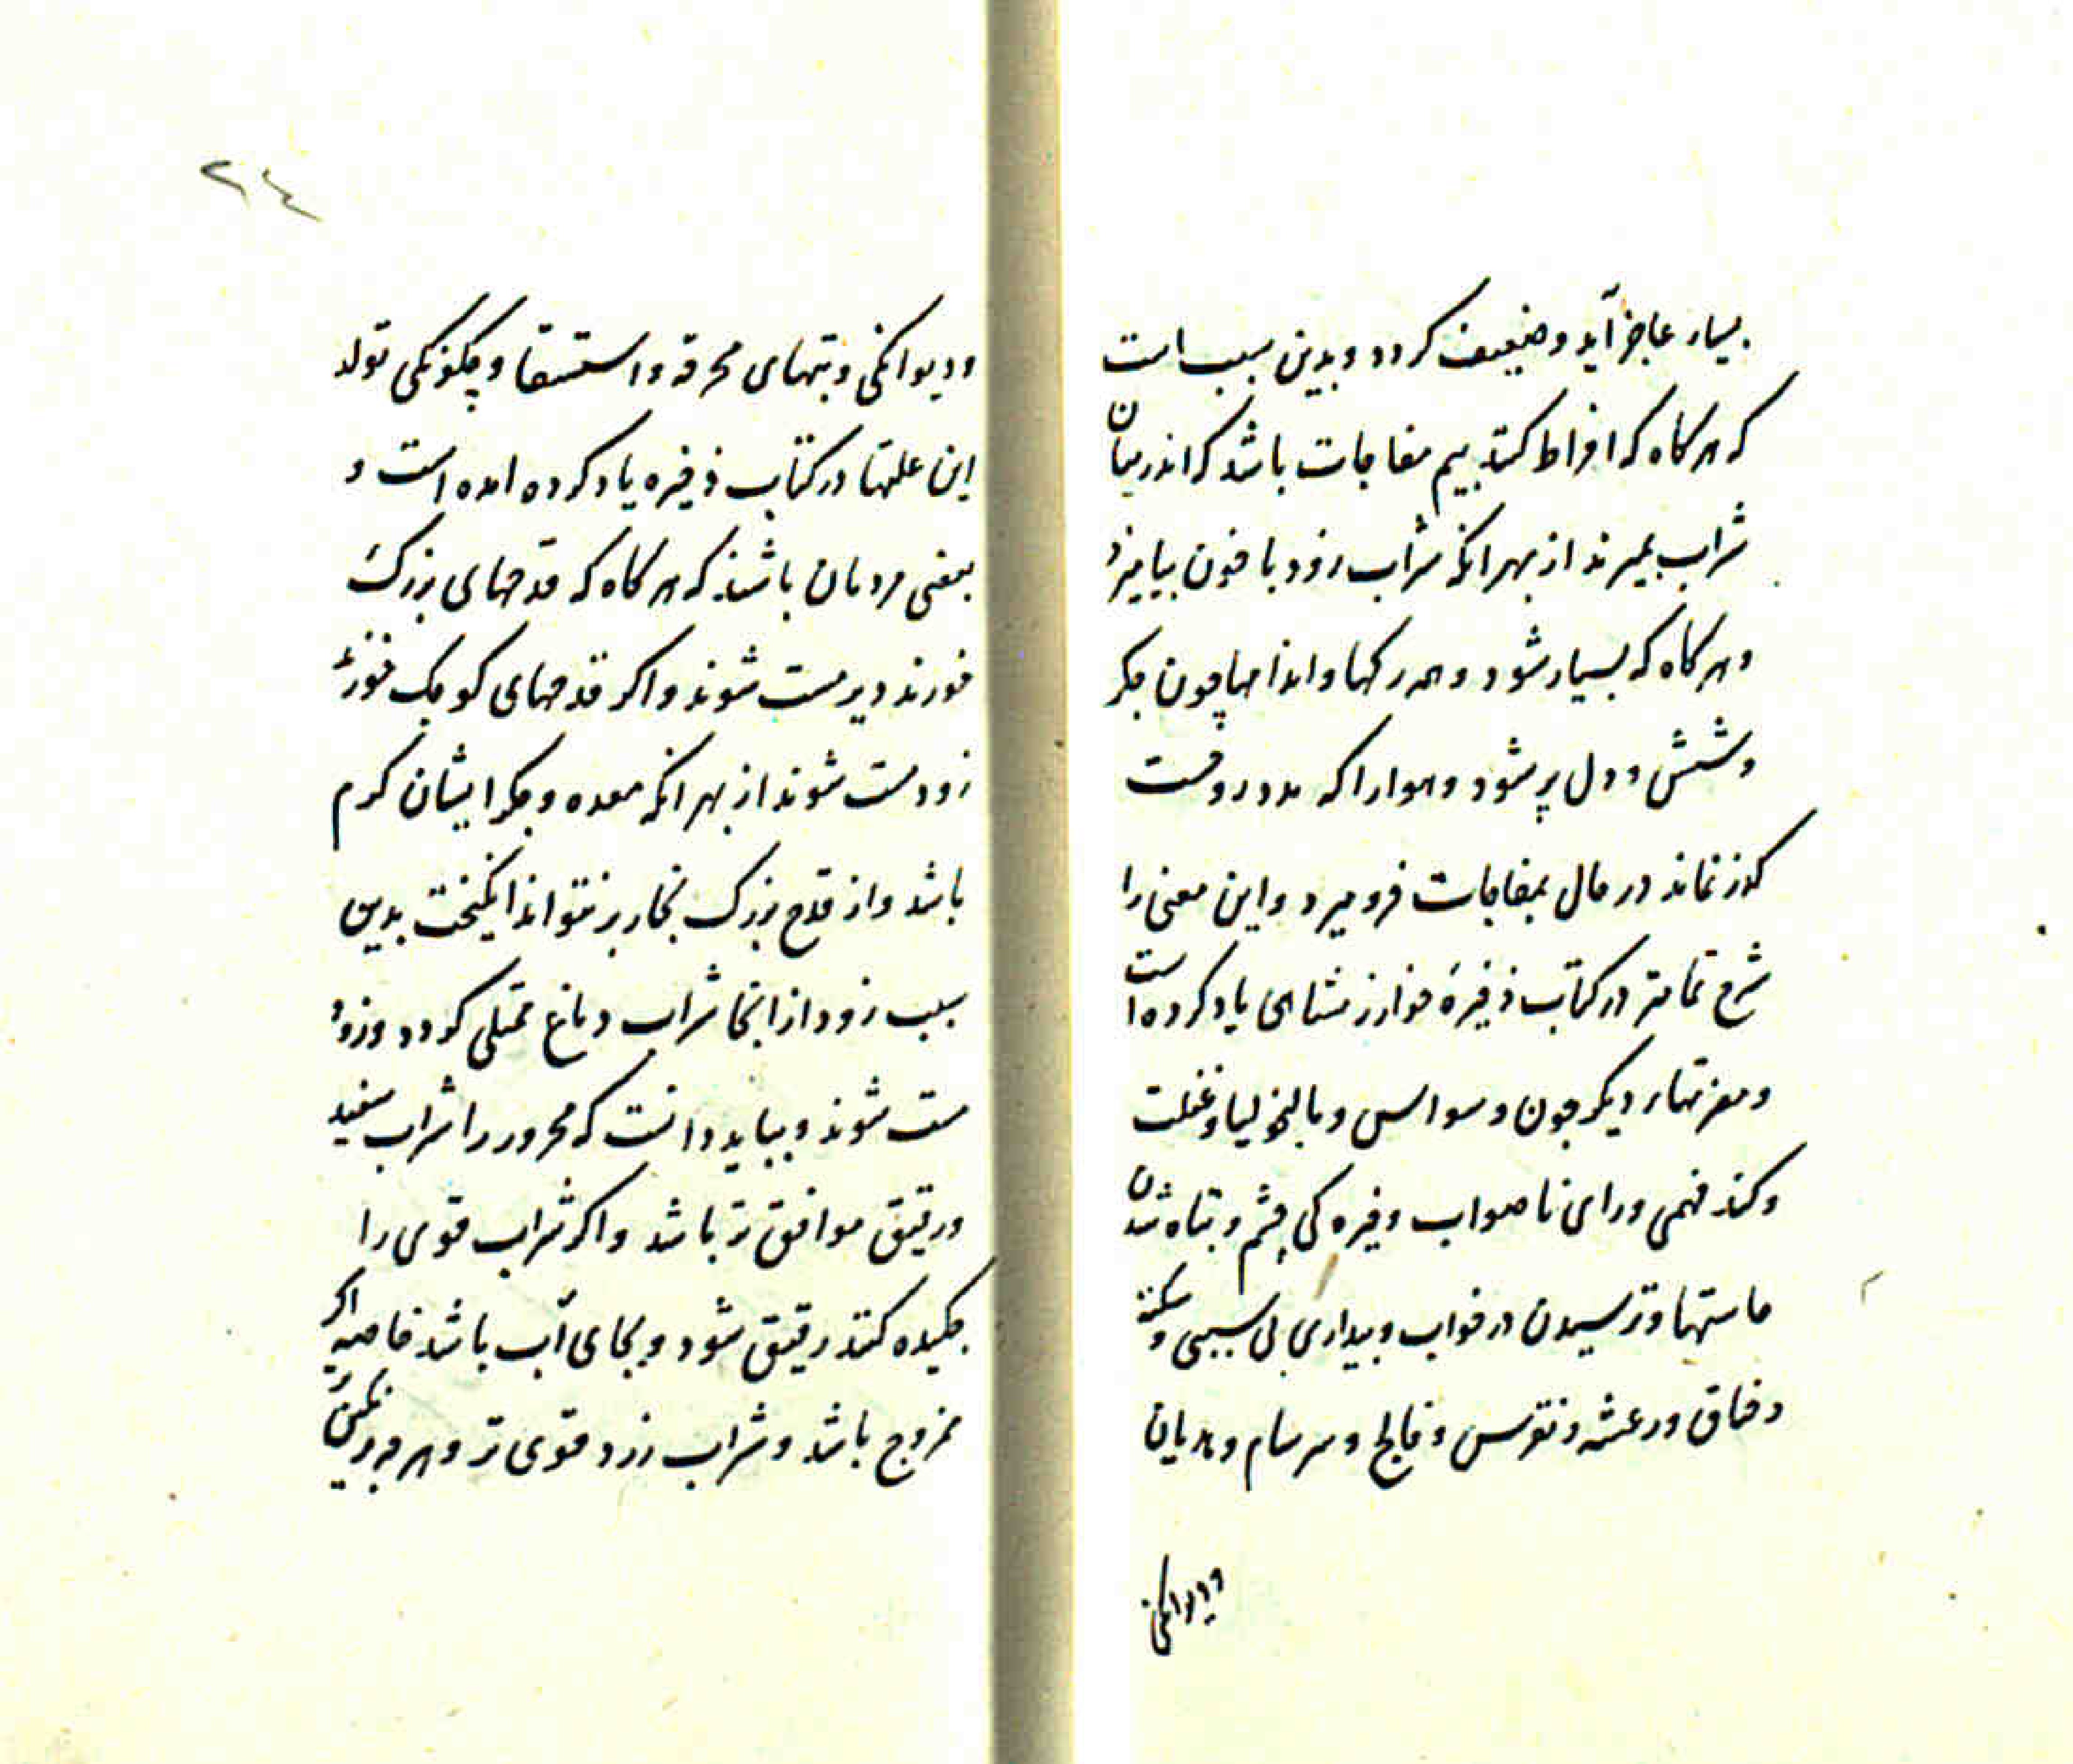 بسیار عاجز آید و ضعیف کردد و بدین سبب است
که هر کاه که افراط کنند بیم مفاجات باشد که اندر میان
شراب بمیرند از بهر انکه شراب زود با خون بیامیزد
و هر کاه که بسیار شود و همه رکها و اندامها چون جکر
و شش و دل پر شود و هوا را که مدد روحست
کذر نماند در حال بمفاجات فرو میرد و این معنی را
شرح تمامتر در کتاب ذخیرهٔ خوارزمشاهی یاد کرده است
و مضرتهاء دیکر جون وسواس و مالیخولیا و غفلت
و کند فهمی و رای ناصواب و خیره کی چشم و تباه شدن
حاستها و ترسیدن در خواب و بیداری بی سببی و سکته
و خناق و رعشه و نقرس و فالج و سرسام و هذیان
و دیوانکی
۲٤
و دیوانکی و تبهای محرقه و استسقا و چکونکی تولد
این علتها در کتاب ذخیره یاد کرده امده است و
بعضی مردمان باشند که هر کاه که قدحهای بزرک
خورند دیر مست شوند و اکر قدحهای کوجک خورند
زود مست شوند از بهر انکه معده و جکر ایشان کرم
باشد و از قدح بزرک بخار بر نتواند انکیخت بدین
سبب زود از بخار شراب دماغ ممتلی کردد و زود
مست شوند و بباید دانست که محرور را شراب سفید
و رقیق موافق تر باشد و اکر شراب قوی را
جکیده کنند رقیق شود و بجای آب باشد خاصه اکر
ممزوج باشد و شراب زرد قوی تر و هر چه رنکین تر